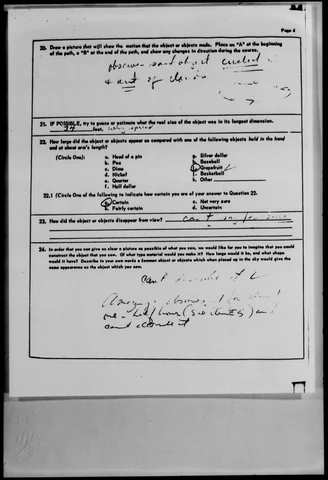 Page 4
20. Draw a picture that will show the motion that the object or objects made. Place an "A" at the beginning
of the path, a "B" at the end of the path, and show any changes in direction during the course.
observer said object circled in
and out of clouds
21. IF POSSIBLE, try to guess or estimate what the real size of the object was in its longest dimension.
feet.
22. How large did the object or objects appear as compared with one of the following objects held in the hand
and at about arm's length?
(Circle One):
a. Head of a pin
b. Pea
c. Dime
d. Nickel
e. Quarter
f. Half dollar
g. Silver dollar
h. Baseball
i. Grapefruit
j. Basketball
k. Other
22.1 (Circle One of the following to indicate how certain you are of your answer to Question 22.
a. Certain
b. Fairly certain
c. Not very sure
d. Uncertain
23. How did the object or objects disappear from view?
24. In order that you can give as clear a picture as possible of what you saw, we would like for you to imagine that you could
construct the object that you saw. Of what type material would you make it? How large would it be, and what shape
would it have? Describe in your own words a common object or objects which when placed up in the sky would give the
same appearance as the object which you saw.
Can't
observed for about
one-half hour